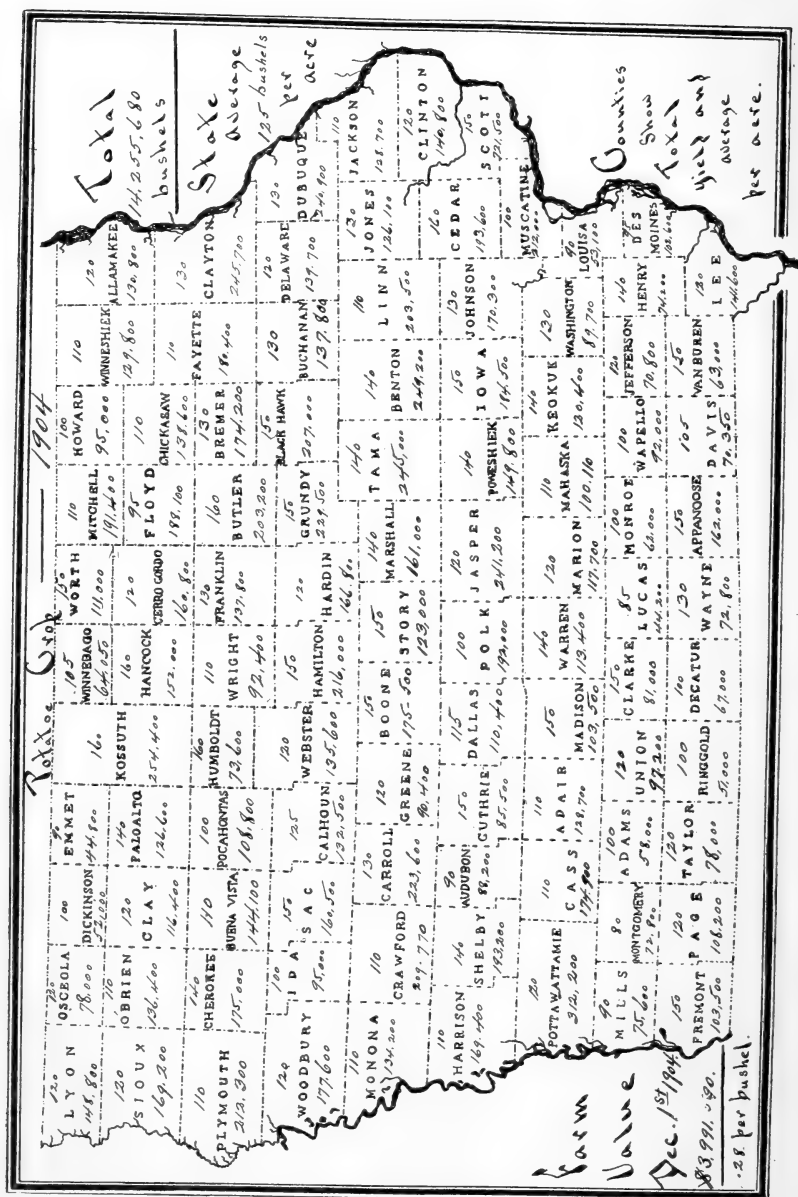 Potatoe Crop — 1904
Total
14.255.680
bushels
State
average
125 bushels
per
acre
Counties
Show
Total
yield and
average
per acre.
Farm
Value
Dec. 1st 1904.
.28 per bushel.
120
LYON
148,800
120
OSCEOLA
78.000
100
DICKINSON
90
EMMET
44.800
160
KOSSUTH
254,400
105
WINNEBAGO
64,050
WORTH
111,000
110
MITCHELL
191,400
100
HOWARD
95,000
110
WINNESHIEK
129.800
120
ALLAMAKEE
130,800
120
SIOUX
169.200
110
OBRIEN
136,400
120
CLAY
116.400
140
PALO ALTO
126,600
160
HANCOCK
152.000
120
CERRO GORDO
160,800
95
FLOYD
188,100
110
CHICKASAW
138.600
110
FAYETTE
180.400
130
CLAYTON
245.700
110
PLYMOUTH
212,300
140
CHEROKEE
175.000
110
BUENA VISTA
144,100
100
POCAHONTAS
108,800
160
HUMBOLDT
73,600
110
WRIGHT
92,400
130
FRANKLIN
137,800
160
BUTLER
203,200
130
BREMER
174,200
120
WOODBURY
177.600
100
IDA
95.000
150
SAC
160,500
125
CALHOUN
132,500
120
WEBSTER
135,600
150
HAMILTON
216,000
120
HARDIN
166.800
150
GRUNDY
229,500
150
BLACK HAWK
207.000
130
BUCHANAN
137.800
120
DELAWARE
139.700
130
DUBUQUE
240,900
110
MONONA
134,200
110
CRAWFORD
209.770
130
CARROLL
223,600
120
GREENE
90,400
150
BOONE
175-500
150
STORY
123,000
140
MARSHALL
161,000
140
TAMA
245,000
140
BENTON
249,200
110
LINN
203,500
130
JONES
126,100
110
JACKSON
128.700
120
CLINTON
140,800
110
HARRISON
169.400
140
SHELBY
193,200
90
AUDUBON
88,200
150
GUTHRIE
85.500
115
DALLAS
110,400
100
POLK
192,000
120
JASPER
241,200
140
POWESHIEK
149.800
150
IOWA
184,500
130
JOHNSON
170,300
160
CEDAR
193,600
150
SCOTT
721,500
100
MUSCATINE
212,000
120
POTTAWATTAMIE
312,200
110
CASS
174,900
110
ADAIR
128,700
150
MADISON
103,500
140
WARREN
113.400
120
MARION
117.700
110
MAHASKA
100,110
140
KEOKUK
120,400
130
WASHINGTON
89,700
90
LOUISA
53,100
90
MILLS
75,600
80
MONTGOMERY
72,800
100
ADAMS
58,000
120
UNION
97,200
150
CLARKE
81,000
85
LUCAS
44,200
100
MONROE
62,000
100
WAPELLO
92,000
120
JEFFERSON
70,800
140
HENRY
74,200
DES
MOINES
102,600
150
FREMONT
103,500
120
PAGE
106,200
120
TAYLOR
78,000
100
RINGGOLD
57,000
100
DECATUR
67,000
130
WAYNE
72,800
150
APPANOOSE
162,000
105
DAVIS
70,350
150
VAN BUREN
63,000
120
LEE
141,600